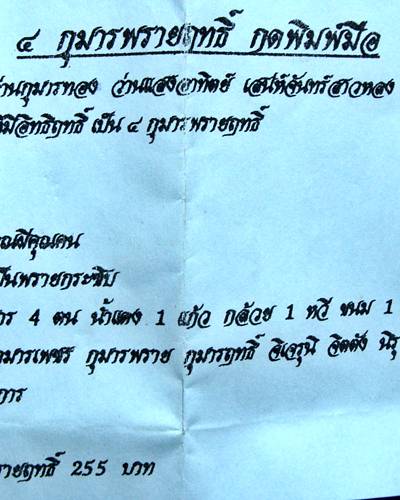 ๔ กุมารพรายฤทธิ์ กดพิมพ์มือ
ว่านกุมารทอง ว่านแสงอาทิตย์ เสน่ห์จันทร์สาวหลง
มีอิทธิฤทธิ์ เป็น ๔ กุมารพรายฤทธิ์
คุณผีคุณคน
เป็นพรายกระซิบ
4 ตน น้ำแดง 1 แก้ว กล้วย 1 หวี ขนม 1
กุมารเพชร กุมารพราย กุมารฤทธิ์ จิเจรุนิ จิตตัง นิรุ
การ
พรายฤทธิ์ 255 บาท